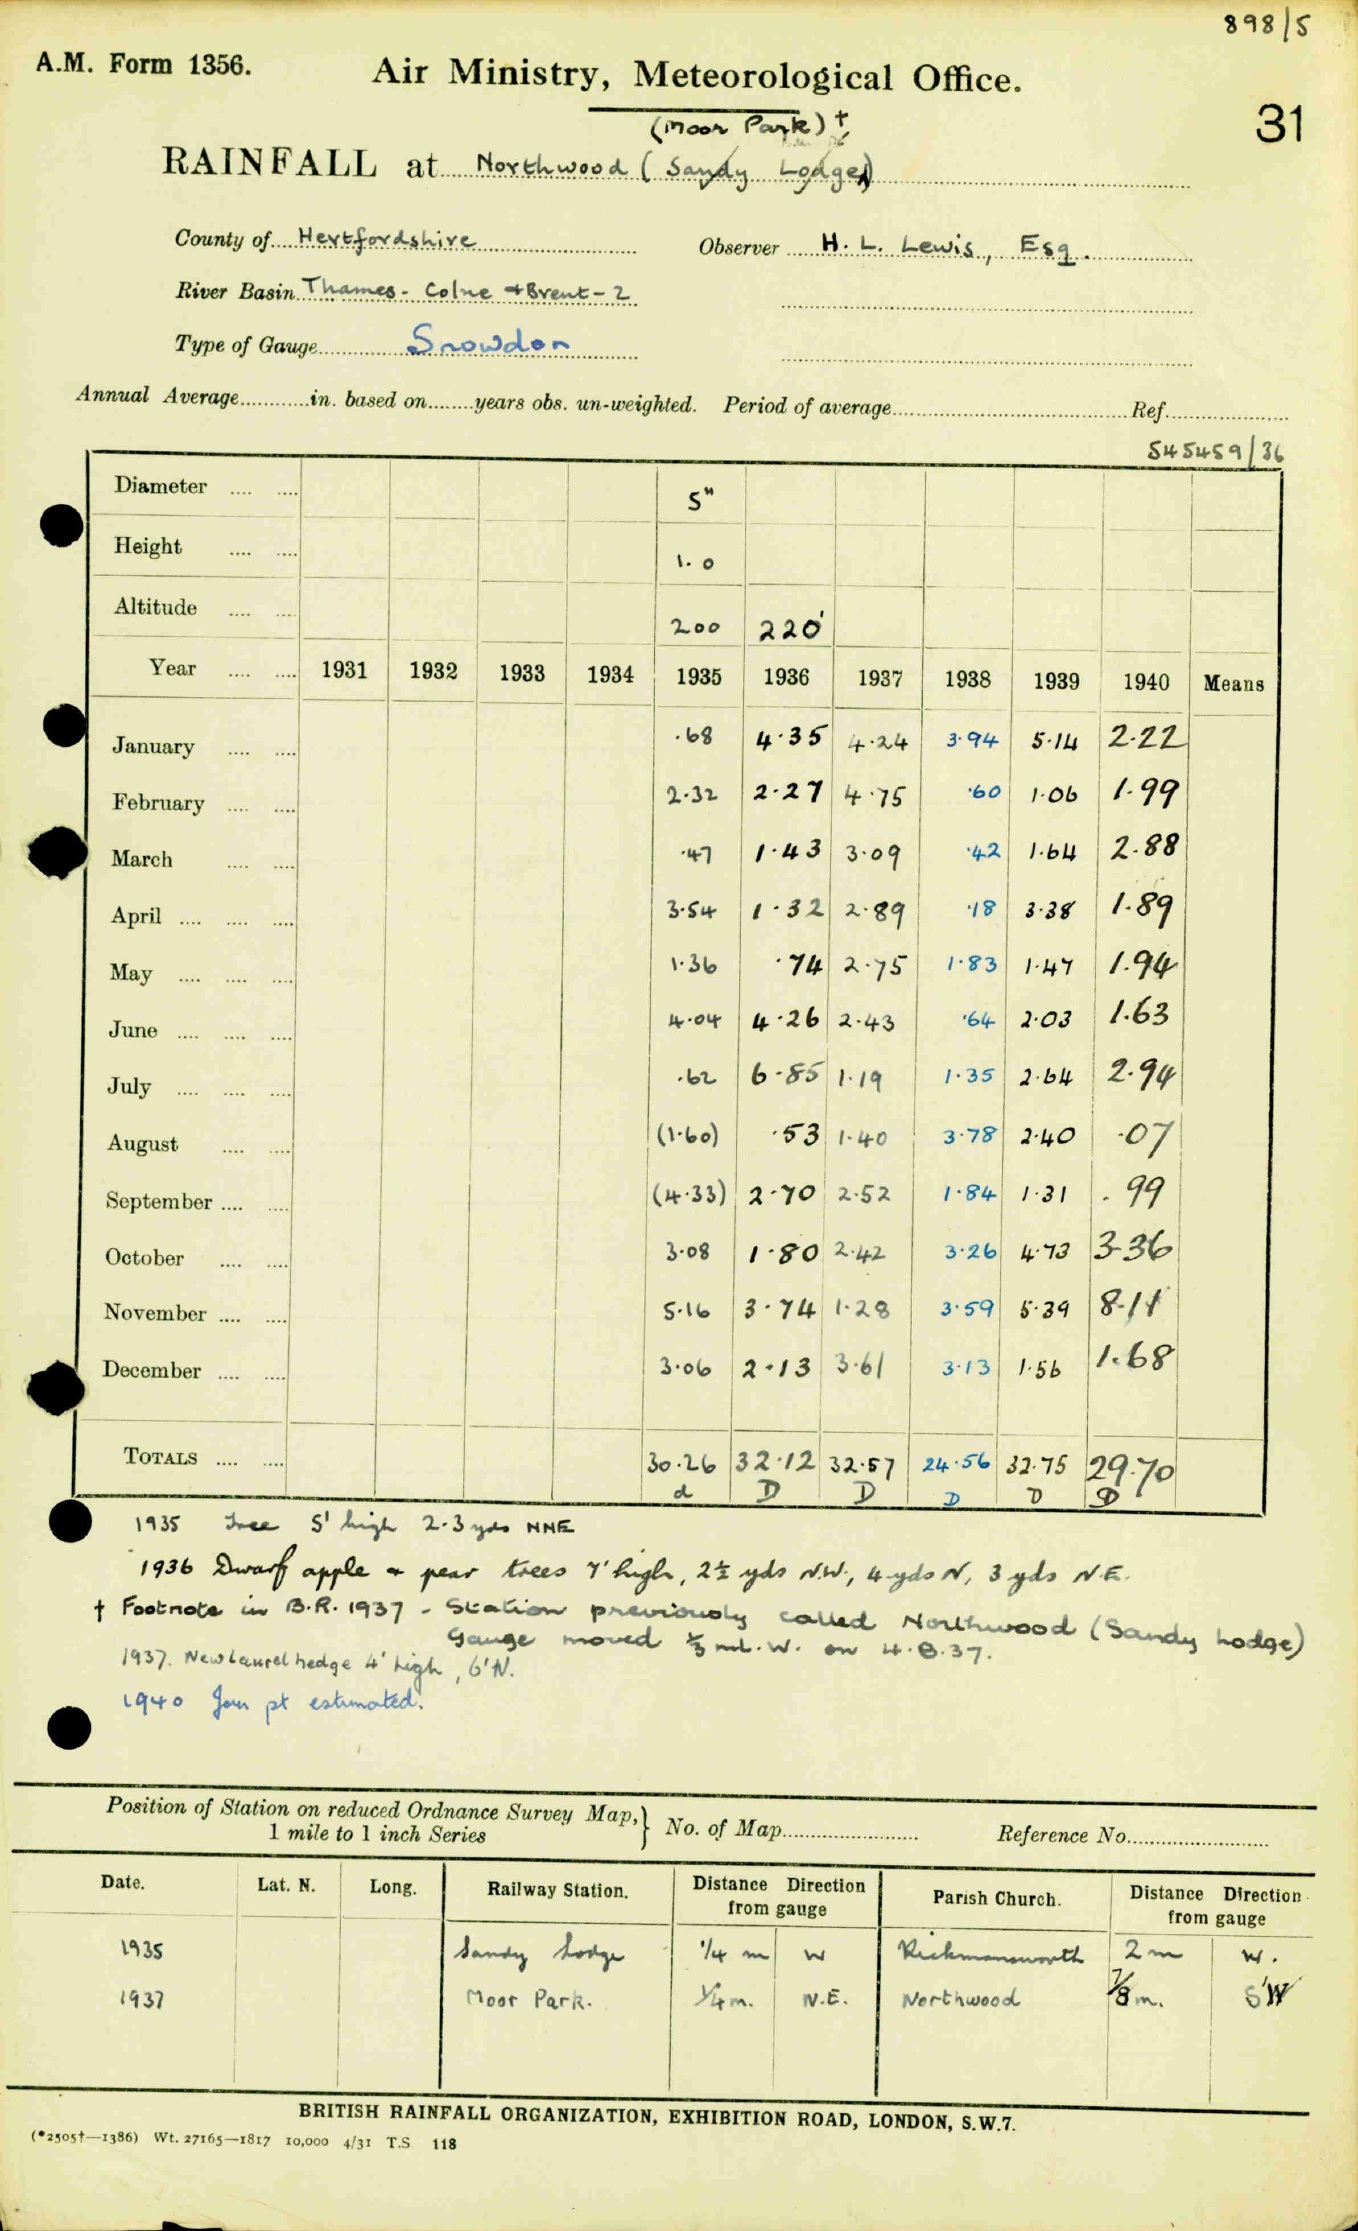 898/5
A.M. Form 1356.
Air Ministry, Meteorological Office.
31
(Moor Park) †
RAINFALL at Northwood (Sandy Lodge)
County of Hertfordshire Observer H. L. Lewis, Esq.
River Basin Thames - Colne + Brent - 2
Type of Gauge Snowdon
Annual Average in. based on years obs. un-weighted. Period of average Ref.
545459/36
Diameter 5"
Height 1.0
Altitude 200 220'
Year 1931 1932 1933 1934 1935 1936 1937 1938 1939 1940 Means
January .68 4.35 4.24 3.94 5.14 2.22
February 2.32 2.27 4.75 .60 1.06 1.99
March .47 1.43 3.09 .42 1.64 2.88
April 3.54 1.32 2.89 .18 3.38 1.89
May 1.36 .74 2.75 1.83 1.47 1.94
June 4.04 4.26 2.43 .64 2.03 1.63
July .62 6.85 1.19 1.35 2.64 2.94
August (1.60) .53 1.40 3.78 2.40 .07
September (4.33) 2.70 2.52 1.84 1.31 .99
October 3.08 1.80 2.42 3.26 4.73 3.36
November 5.16 3.74 1.28 3.59 5.39 8.11
December 3.06 2.13 3.61 3.13 1.56 1.68
TOTALS 30.26 32.12 32.57 24.56 32.75 29.70
d D D D D D
1935 Tree 5' high 2.3 yds NNE
1936 Dwarf apple + pear trees 7' high, 2½ yds N.W., 4 yds N, 3 yds N.E.
† Footnote in B.R. 1937 - Station previously called Northwood (Sandy Lodge)
Gauge moved ⅓ ml. W. on 4.8.37.
1937. New Laurel hedge 4' high, 6' N.
1940 Jan pt estimated.
Position of Station on reduced Ordnance Survey Map,} No. of Map Reference No.
1 mile to 1 inch Series
Date. Lat. N. Long. Railway Station. Distance Direction from gauge Parish Church. Distance Direction from gauge
1935 Sandy Lodge ¼ m W Rickmansworth 2 m W.
1937 Moor Park. ¼ m. N.E. Northwood ⅞ m. S'W
BRITISH RAINFALL ORGANIZATION, EXHIBITION ROAD, LONDON, S.W.7.
(*2505†—1386) Wt. 27165—1817 10,000 4/31 T.S. 118